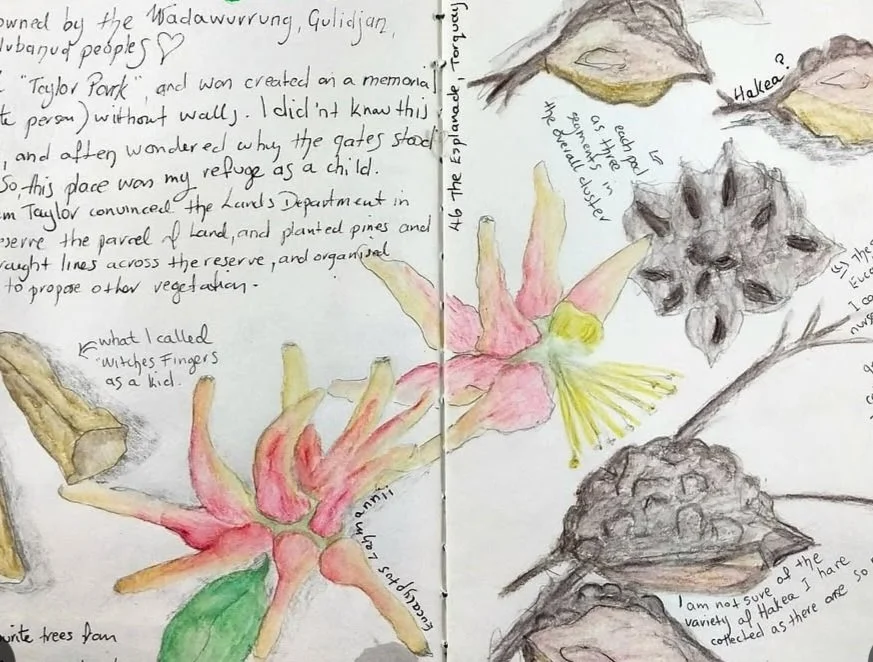 owned by the Wadawurrung, Gulidjan,
peoples ♡
"Taylor Park", and was created as a memorial
person) without walls. I did'nt know this
, and often wondered why the gates stood
So, this place was my refuge as a child.
Taylor convinced the Lands Department in
the parcel of Land, and planted pines and
lines across the reserve, and organised
to propose other vegetation.
what I called
"Witches Fingers
as a kid.
Eucalyptus Lehmannii
trees from
46 The Esplanade, Torquay
Hakea?
each pod
as three
segments in
the overall cluster
I am not sure of the
variety of Hakea I have
collected as there are so